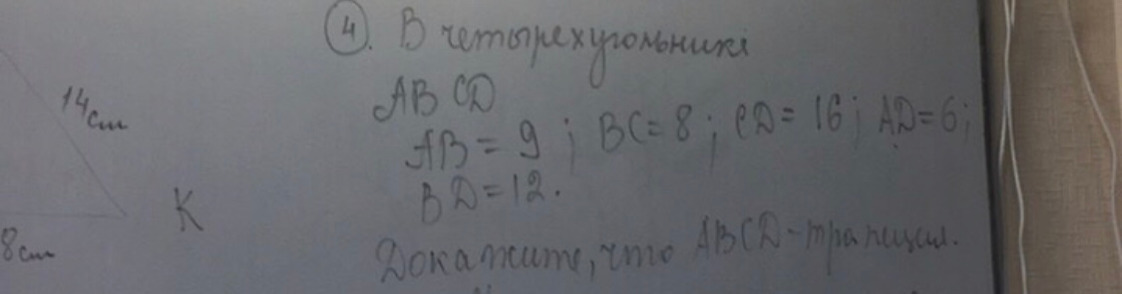 ④. В четырехугольнике
14см
ABCD
AB = 9 ; BC = 8 ; CD = 16 ; AD = 6 ;
K
BD = 12.
8см
Докажите, что ABCD - трапеция.